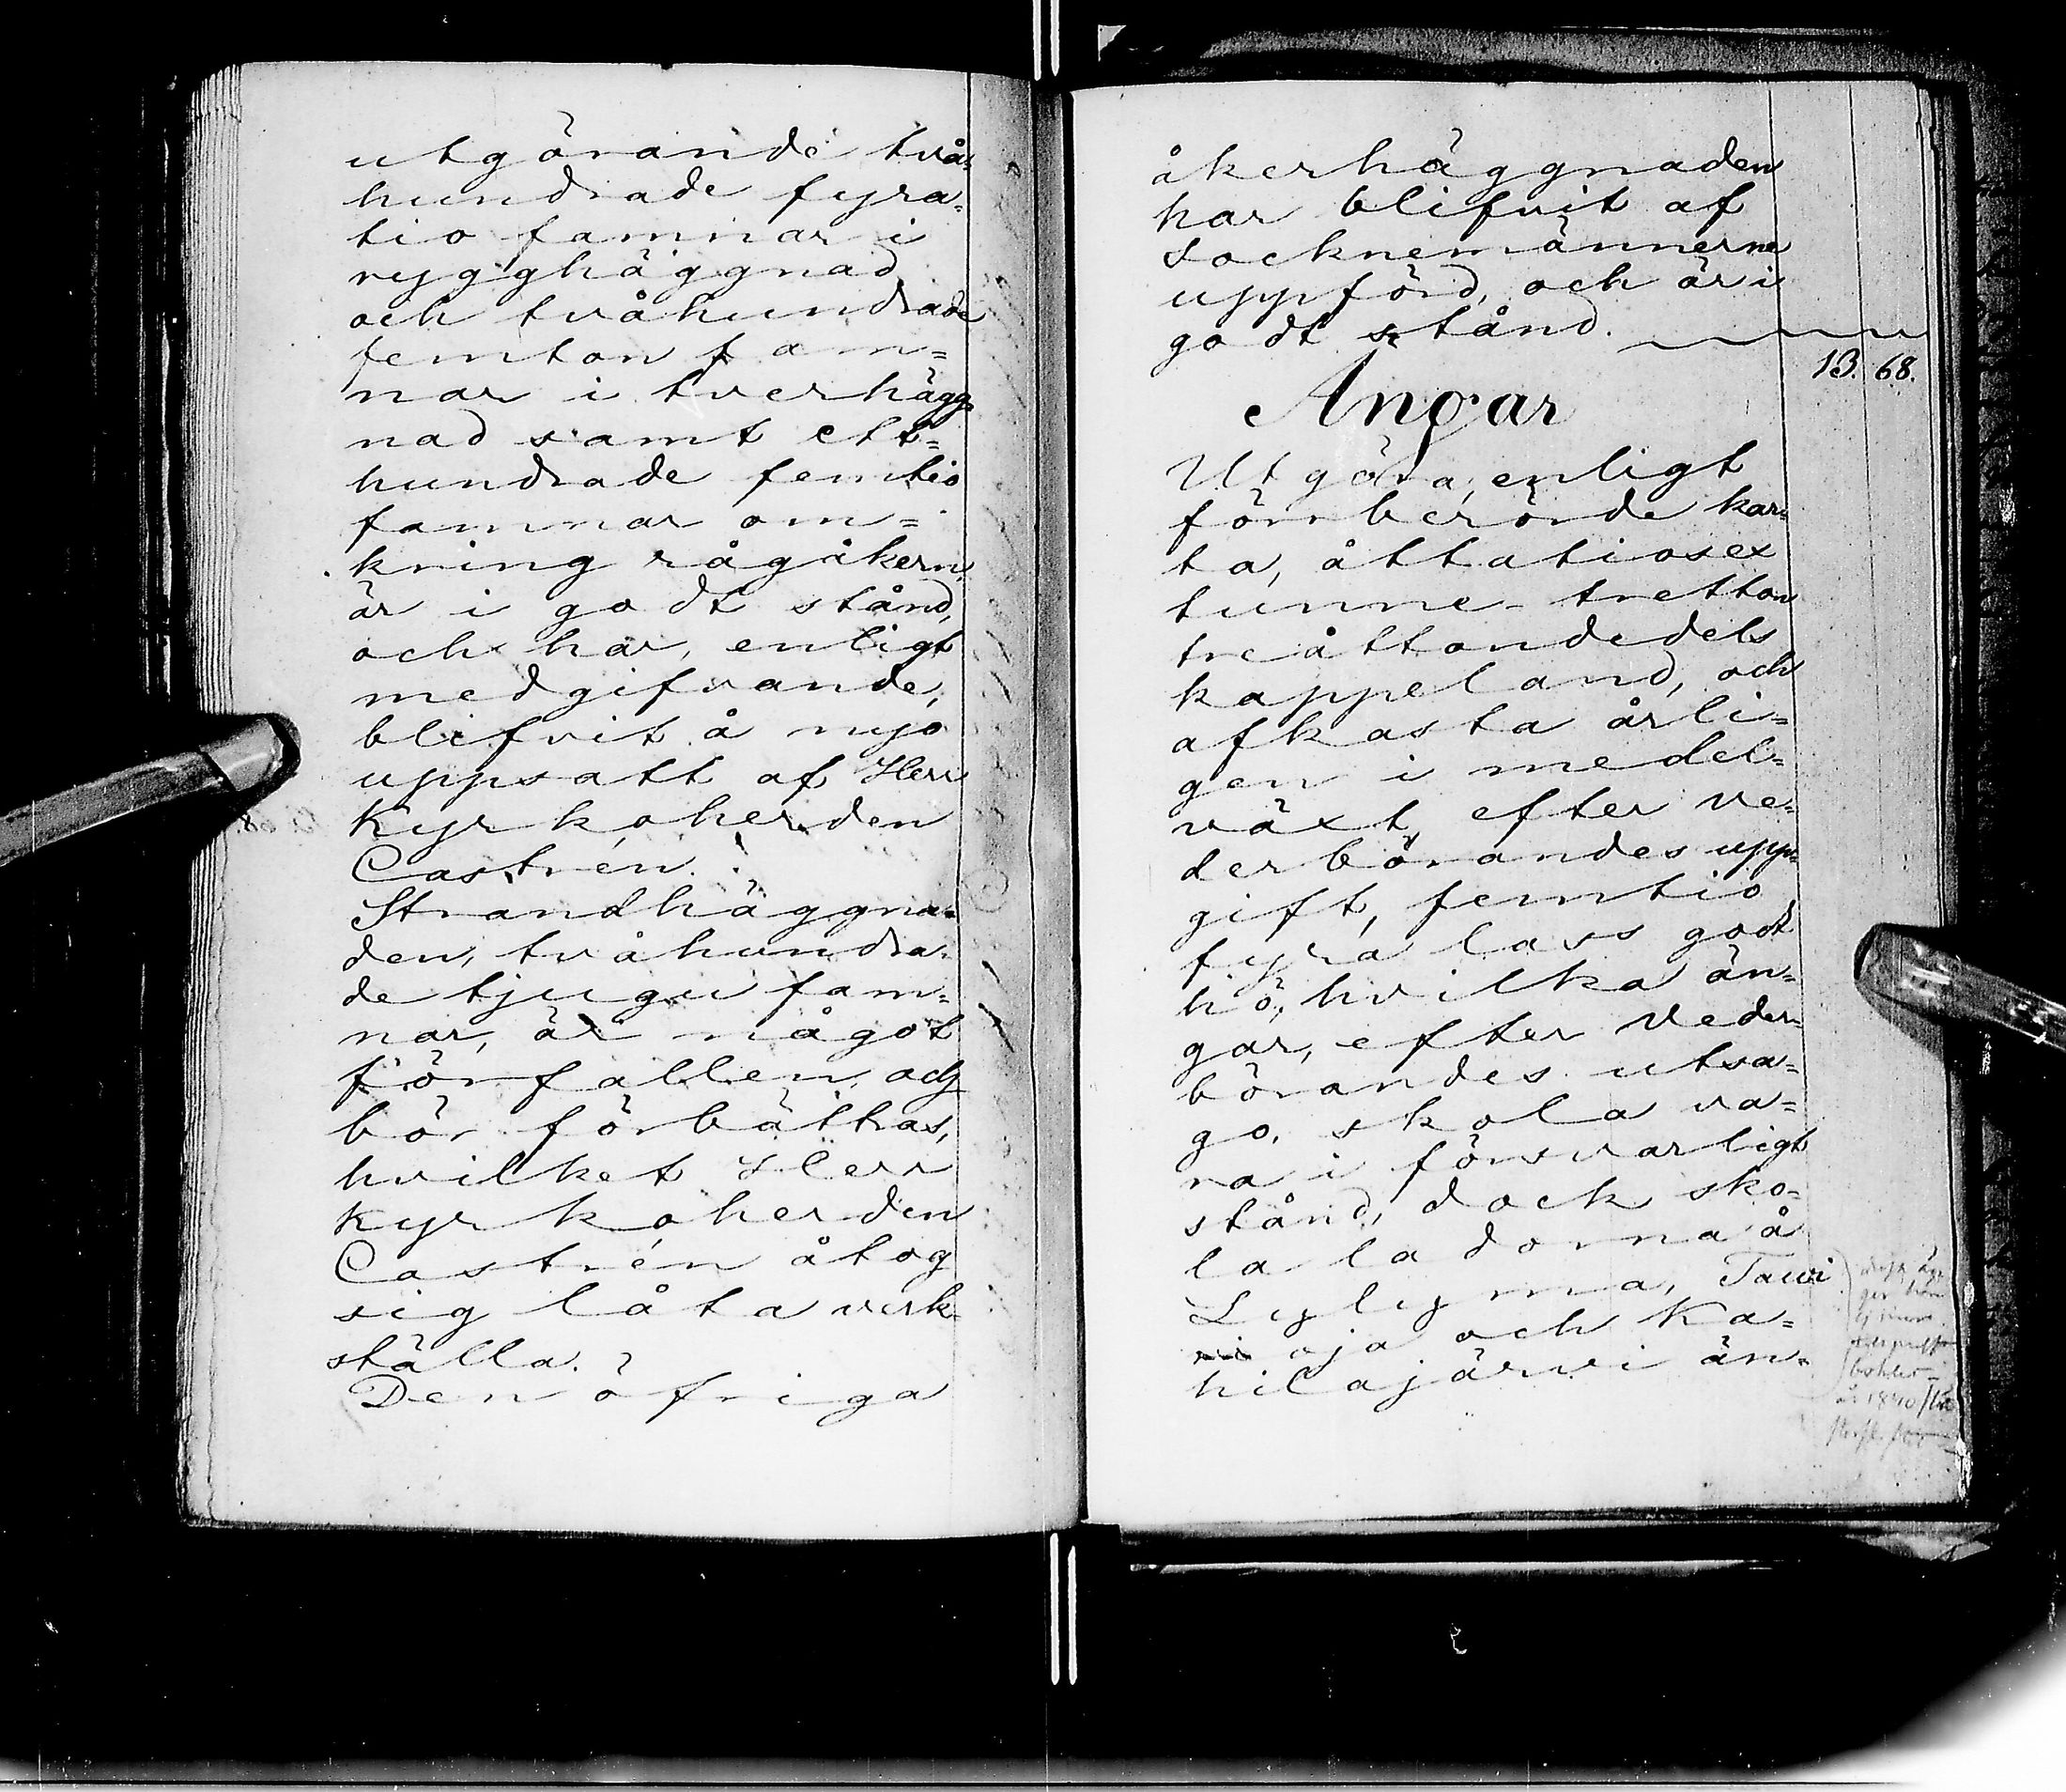 utgörande två=
hundrade fyra=
tio famnar i
rygghäggnad
och tvåhundrade
femton fam=
nar i tverhägg=
nad samt ett=
hundrade femtio
famnar om=
kring rågåkern,
är i godt stånd,
och har, enligt
medgifvande,
blifvit å nyo
uppsatt af Herr
Kyrkoherden
Castrén.
Strandhäggna=
den, tvåhundra=
de tjugu fam=
nar, är något
förfallen, och
bör förbättras,
hvilket Herr
Kyrkoherden
Castrén åtog
sig låta verk=
ställa.
Den öfriga
åkerhäggnaden
har blifvit af
socknemännerne
uppförd, och är i
godt stånd.
13. 68.
Ängar
Utgöra, enligt
förberörde kar=
ta, åttatiosex
tunne- tretton
treåttondedels
kappeland, och
afkasta årli=
gen i medel=
växt, efter ve=
derbörandes upp=
gift, femtio
fyra lass godt
hö, hvilka än=
gar, efter veder=
börandes utsa=
go, skola va=
ra i försvarligt
stånd, dock sko=
la ladorna å
Lylyma, Tawi
oja och Ka=
hilajärwi än=
år 1840